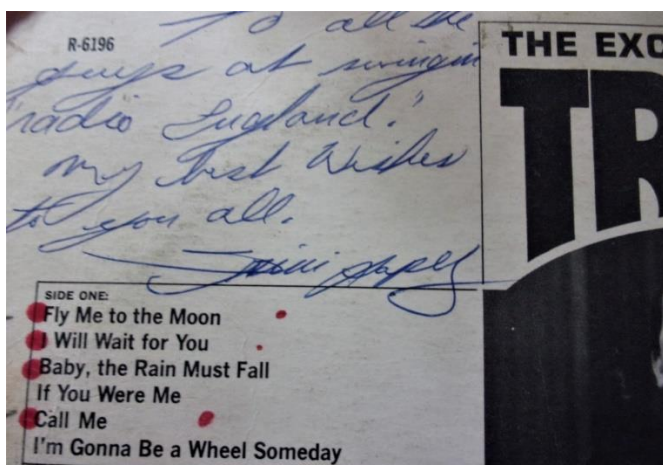 R-6196
To all the
guys at swingin
"radio England."
My best Wishes
to you all.
Trini Lopez
THE EXC
TR
SIDE ONE:
Fly Me to the Moon
I Will Wait for You
Baby, the Rain Must Fall
If You Were Me
Call Me
I'm Gonna Be a Wheel Someday